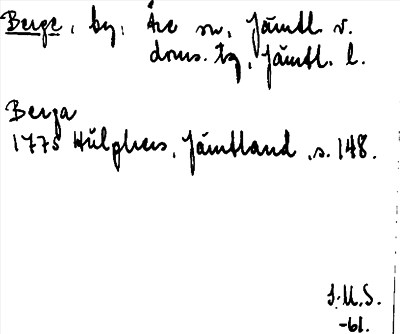 Berge, by, Åre sn, Jämtl. v.
doms. tg, Jämtl. l.
Berga
1775 Hülphers, Jämtland, s. 148.
S.U.S.
-61.